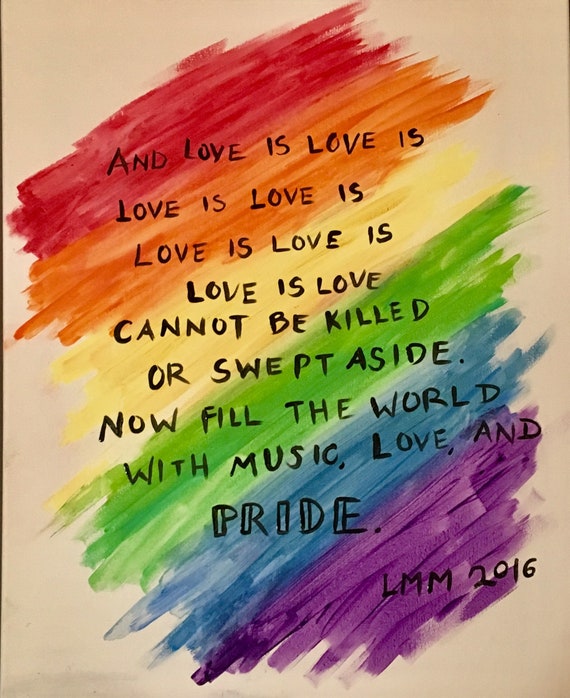 AND LOVE IS LOVE IS
LOVE IS LOVE IS
LOVE IS LOVE IS
LOVE IS LOVE
CANNOT BE KILLED
OR SWEPT ASIDE.
NOW FILL THE WORLD
WITH MUSIC, LOVE, AND
PRIDE.
LMM 2016